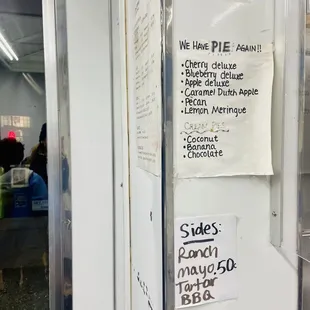 WE HAVE PIE AGAIN!!
• Cherry deluxe
• Blueberry deluxe
• Apple deluxe
• Caramel Dutch Apple
• Pecan
• Lemon Meringue
• Coconut
• Banana
• Chocolate
Sides:
Ranch
mayo .50¢
Tartar
BBQ